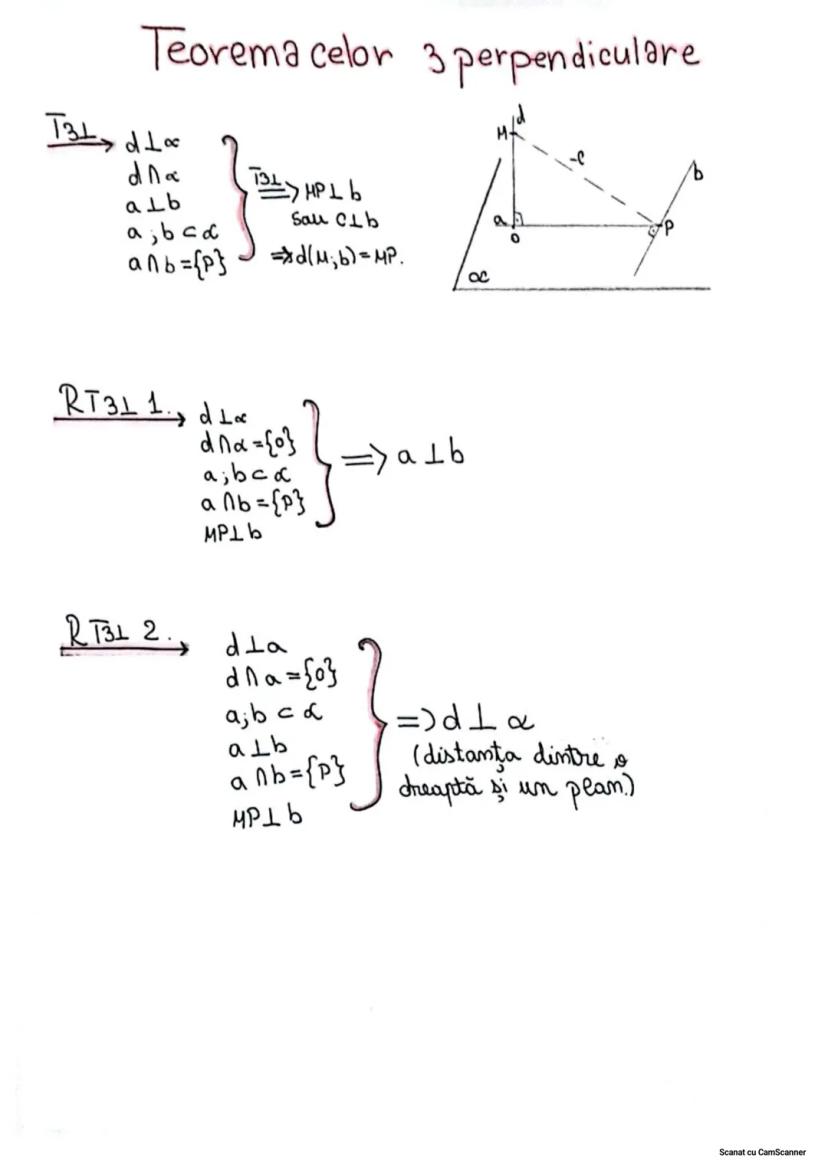 Teorema celor 3 perpendiculare
T3⊥ d⊥α
d∩α
a⊥b
a;b⊂α
a∩b={P}
T3⊥ => MP⊥b
sau c⊥b
=> d(M;b)=MP.
d
M
c
b
a
O
P
α
RT3⊥ 1. d⊥α
d∩α={O}
a;b⊂α
a∩b={P}
MP⊥b
=> a⊥b
RT3⊥ 2. d⊥a
d∩a={O}
a;b⊂α
a⊥b
a∩b={P}
MP⊥b
=> d⊥α
(distanța dintre o
dreaptă și un plan)
Scanat cu CamScanner